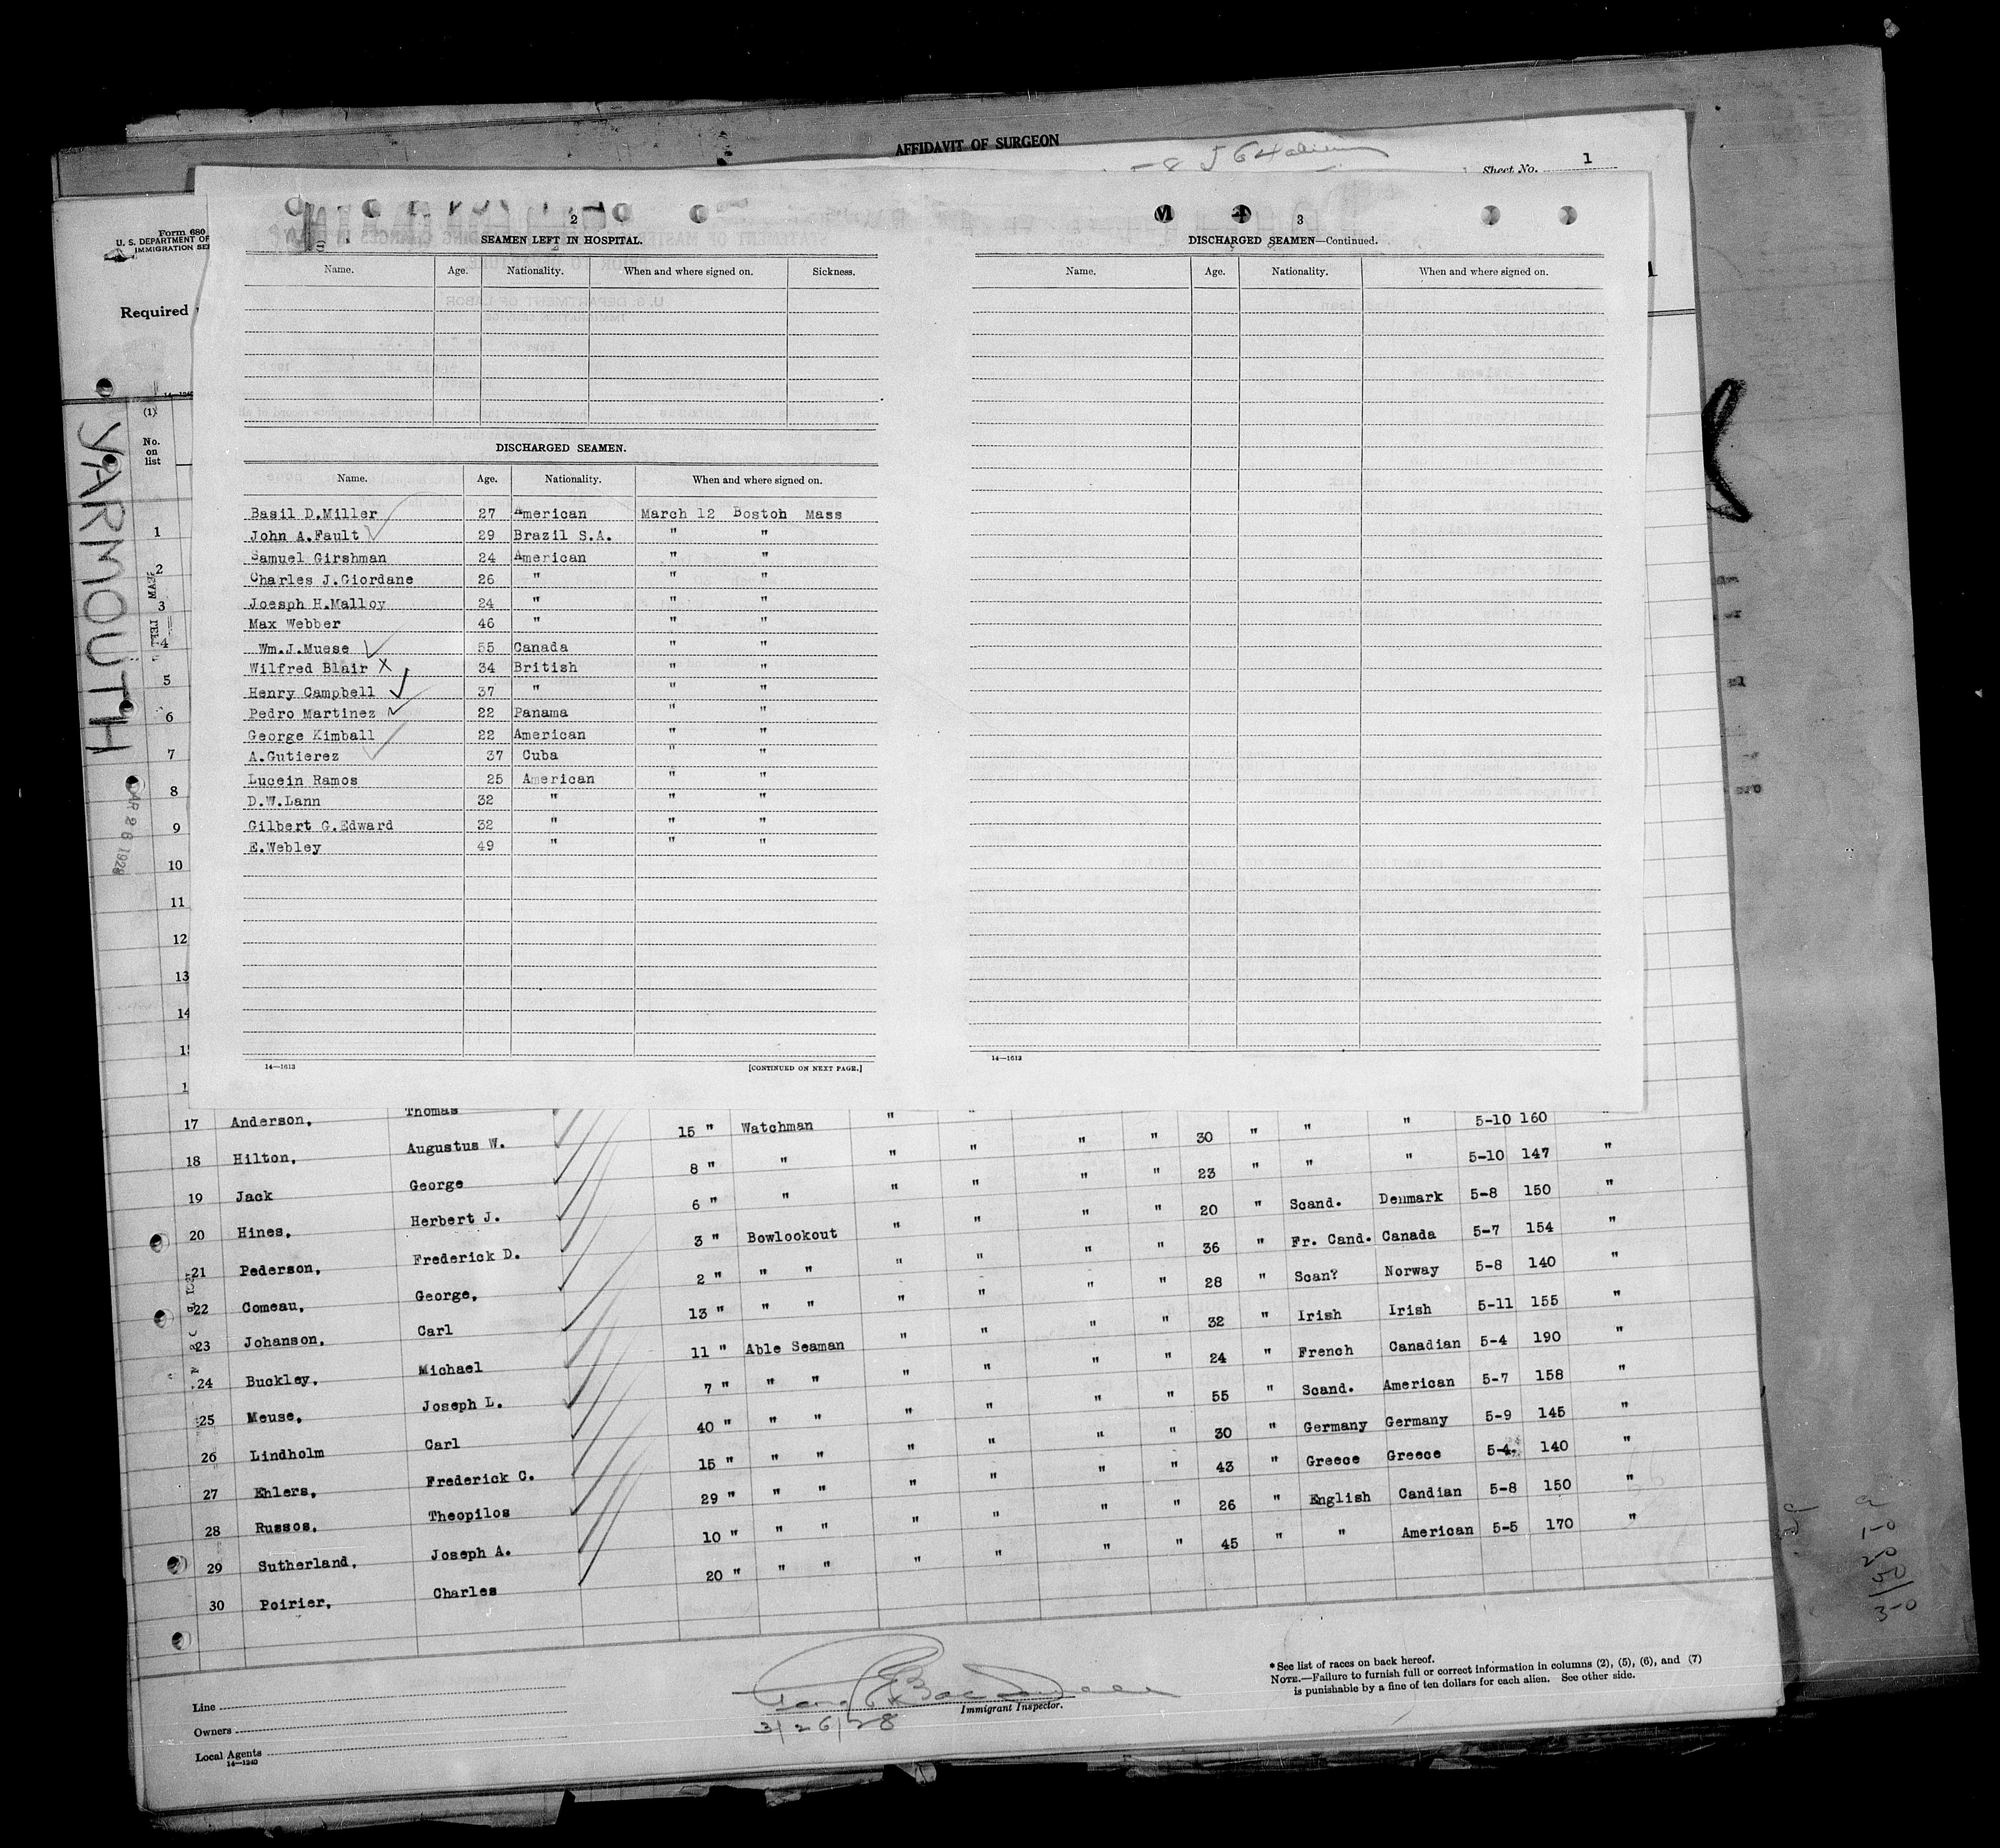 AFFIDAVIT OF SURGEON
Sheet No. 1
Form 680
U. S. DEPARTMENT OF
IMMIGRATION SE
Required
14—1240
(1)
No.
on
list
YARMOUTH
2
SEAMEN LEFT IN HOSPITAL.
Name. Age. Nationality. When and where signed on. Sickness.
DISCHARGED SEAMEN.
Name. Age. Nationality. When and where signed on.
Basil D.Miller 27 American March 12 Boston Mass
John A.Fault 29 Brazil S.A. " "
Samuel Girshman 24 American " "
Charles J.Giordane 26 " " "
Joesph H.Malloy 24 " " "
Max Webber 46 " " "
Wm.J.Muese 55 Canada " "
Wilfred Blair X 34 British " "
Henry Campbell 37 " " "
Pedro Martinez 22 Panama " "
George Kimball 22 American " "
A.Gutierez 37 Cuba " "
Lucein Ramos 25 American " "
D.W.Lann 32 " " "
Gilbert G.Edward 32 " " "
E.Webley 49 " " "
14—1613 [CONTINUED ON NEXT PAGE.]
3
DISCHARGED SEAMEN—Continued.
Name. Age. Nationality. When and where signed on.
14—1613
1
2
3
4
5
6
7
8
9
10
11
12
13
14
17 Anderson, Thomas
18 Hilton, Augustus W. 15 " Watchman " " " " 30 " " " 5-10 160 "
19 Jack George 8 " " " " " " 23 " " " 5-10 147 "
20 Hines, Herbert J. 6 " " " " " " 20 " Scand. Denmark 5-8 150 "
21 Pederson, Frederick D. 3 " Bowlookout " " " " 36 " Fr. Cand. Canada 5-7 154 "
22 Comeau, George, 2 " " " " " " " 28 " Scan? Norway 5-8 140 "
23 Johanson, Carl 13 " " " " " " " 32 " Irish Irish 5-11 155 "
24 Buckley, Michael 11 " Able Seaman " " " " 24 " French Canadian 5-4 190 "
25 Meuse, Joseph L. 7 " " " " " " " 55 " Scand. American 5-7 158 "
26 Lindholm Carl 40 " " " " " " " 30 " Germany Germany 5-9 145 "
27 Ehlers, Frederick C. 15 " " " " " " " 43 " Greece Greece 5-4 140 "
28 Russos, Theopilos 29 " " " " " " " 26 " English Candian 5-8 150 "
29 Sutherland, Joseph A. 10 " " " " " " " 45 " " American 5-5 170 "
30 Poirier, Charles 20 " " " " "
Line
Owners
Local Agents
14—1240
3/26/28
Immigrant Inspector.
* See list of races on back hereof.
NOTE.—Failure to furnish full or correct information in columns (2), (5), (6), and (7)
is punishable by a fine of ten dollars for each alien. See other side.